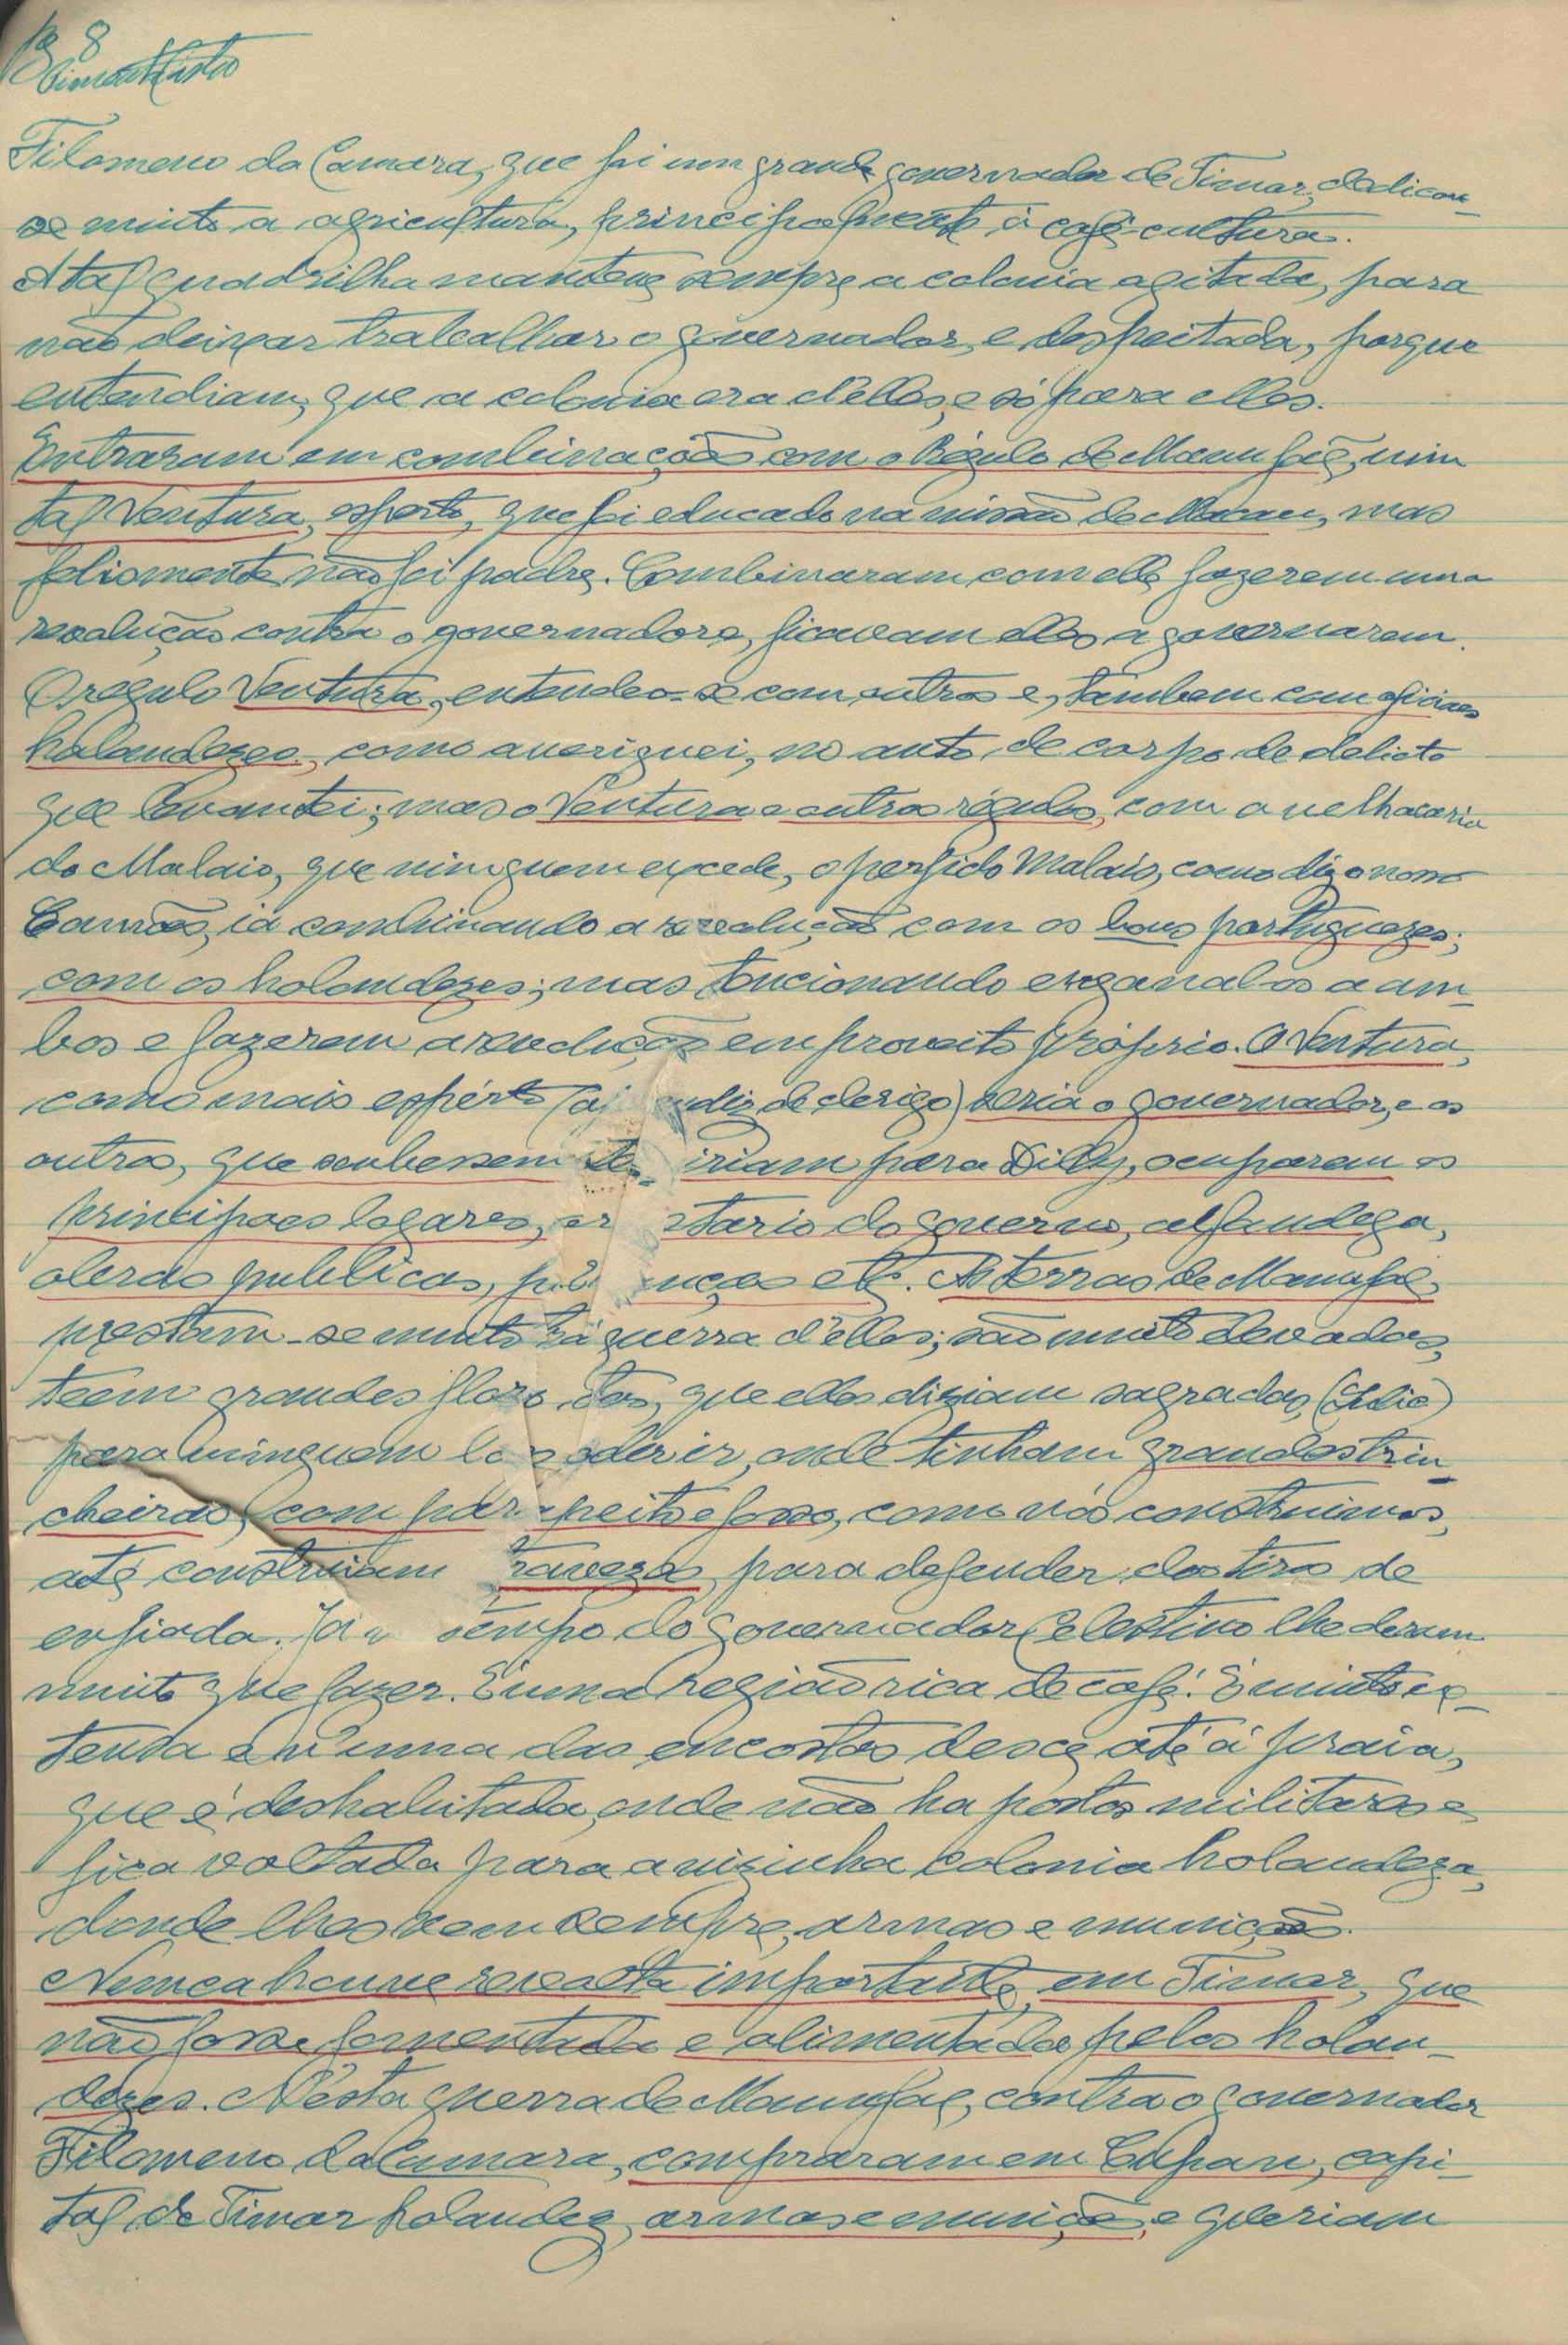 8
Filomeno da Camara, que foi um grande governador de Timor, dedicou-
se muito a agricultura, principalmente á café-cultura.
A tal quadrilha manteve sempre a colonia agitada, para
não deixar trabalhar o governador, e despeitada, porque
entendiam, que a colonia era d'elles, e só para elles.
Entraram em combinação com o Régulo de Manufai, um
tal Ventura, esperto, que foi educado na missão de Macau, mas
felismente não foi padre. Combinaram com elle fazerem uma
revolução contra o governador e, ficavam elles a governarem.
O regulo Ventura, entendeo-se com outros e, tambem com oficiaes
holandezes, como averiguei, no auto de corpo de delicto
que levantei; mas o Ventura e outros régulos, com a velhacaria
do Malaio, que ninguem excede, o perfido Malaio, como diz o nosso
Camões, ia combinando a revolução com os bons portuguezes;
com os holandezes; mas tencionando enganal-os a am-
bos e fazerem a revolução em proveito próprio. O Ventura,
como mais espérto (ap ndiz de clerigo) seria o governador, e os
outros, que soubessem iriam para Dilly, ocuparem os
principaes logares, tario do governo, alfandega,
obras publicas, etc. As terras de Manufai
prestam-se muito á guerra d'elles; são muito elevadas,
teem grandes flores tas, que elles diziam sagradas, (Lulic)
para ninguem la poder ir, onde tinham grandes trin-
cheiras, com parapeito e fosso, como nós construimos,
até construiam travezas, para defender dos tiros de
enfiada. Já tempo do governador Celestino lhe deram
muito que fazer. É uma região rica de café. É muito ex-
tensa e n'uma das encostas desce até á praia,
que é deshabitada, onde não ha postos militares e
fica voltada para a vizinha colonia holandeza,
donde lhes vem sempre, armas e munição.
Nunca houve revolta importante, em Timor, que
não fosse fomentada e alimentada pelos holan-
dezes. N'esta guerra de Manufai, contra o governador
Filomeno da Camara, compraram em Cupan, capi-
tal de Timor holandez, armas e munição, e queriam